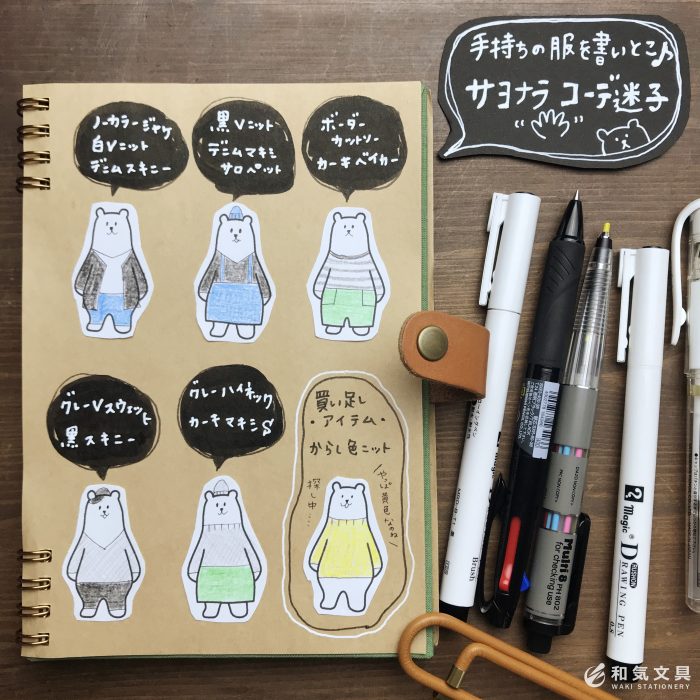 手持ちの服を書いとこ♪
サヨナラ コーデ迷子
ノーカラージャケ
白Vニット
デニムスキニー
黒Vニット
デニムマキシ
サロペット
ボーダー
カットソー
カーキベイカー
グレーVスウェット
黒スキニー
グレーハイネック
カーキマキシS
買い足し
・アイテム・
からし色ニット
やっぱ黄色なのね
探し中…
Brush
Multi 8 PH 802
for checking use
Magic®
DRAWING PEN
0.5
和気文具
WAKI STATIONERY